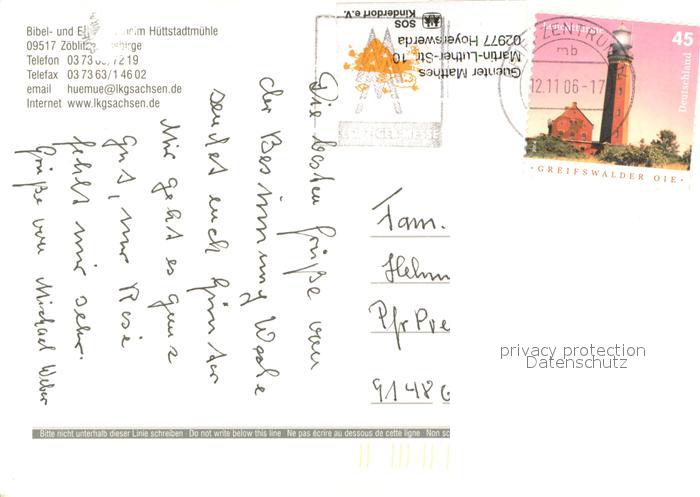 Bibel- und Er heim Hüttstadtmühle
09517 Zöblitz/Erzgebirge
Telefon 03 73 63/72 19
Telefax 03 73 63/1 46 02
email huemue@lkgsachsen.de
Internet www.lkgsachsen.de
Die besten Grüße von
der Besinnung Woche
sendet euch Günter
Mir geht es ganz
gut, nur Rosi
fehlt mir sehr.
Grüße von Michael Weber
Guenter Matthes
Martin-Luther-Str. 10
02977 Hoyerswerda
SOS
Kinderdorf e.V.
LEIPZIGER MESSE
ZENTRUM
mb
12.11.06-17
Leuchttürme
45
Deutschland
GREIFSWALDER OIE
Fam.
Helm
Pfr Pre
9148
privacy protection
Datenschutz
Bitte nicht unterhalb dieser Linie schreiben · Do not write below this line · Ne pas écrire au dessous de cette ligne · Non sc